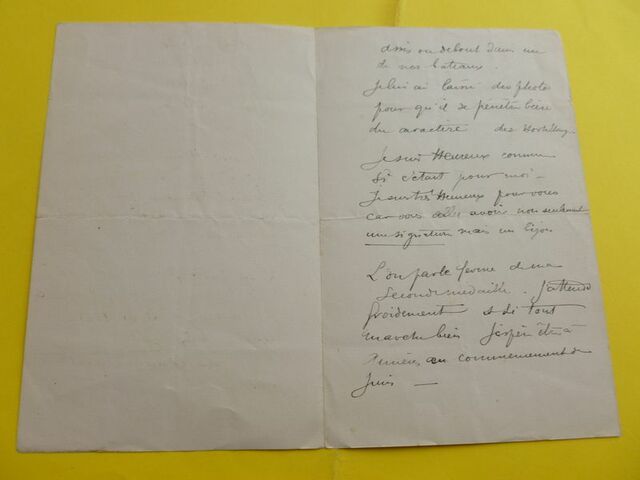 assis ou debout dans un
de nos bateaux.
Je lui ai laissé des photos
pour qu'il se pénètre bien
du caractère des
Je suis Heureux comme
si c'était pour moi —
Je suis très Heureux pour vous
car vous allez avoir non seulement
une signature mais un bijou
L'on parle ferme de ma
seconde medaille. J'attends
froidement & si tout
marche bien J'espère être à
au commencement de
Juin —